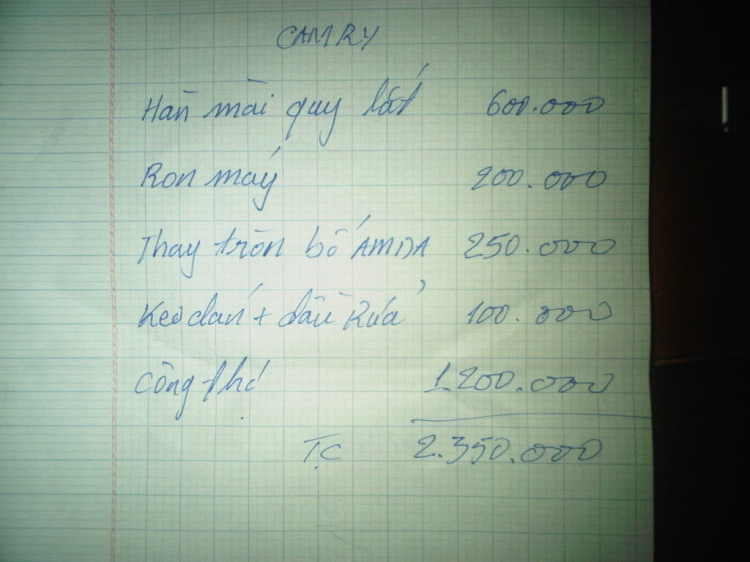 CAMRY
Hàn mài quy lát 600.000
Ron máy 200.000
Thay tròn bố AMDA 250.000
Keo dán + dầu Rửa 100.000
Công thợ 1.200.000
T.C 2.350.000